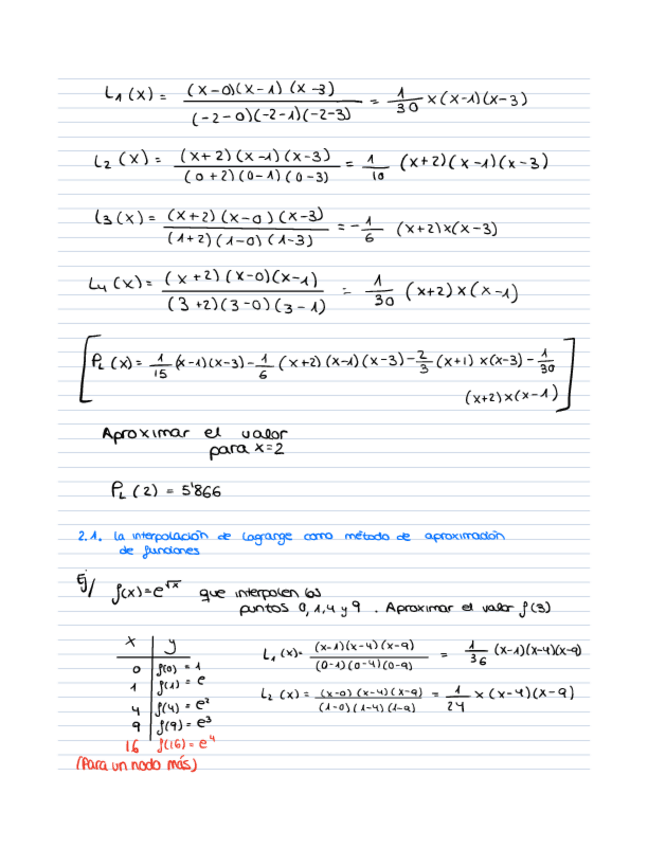 L1(x) = (x-0)(x-1)(x-3) / (-2-0)(-2-1)(-2-3) = 1/30 x(x-1)(x-3)
L2(x) = (x+2)(x-1)(x-3) / (0+2)(0-1)(0-3) = 1/10 (x+2)(x-1)(x-3)
L3(x) = (x+2)(x-0)(x-3) / (1+2)(1-0)(1-3) = -1/6 (x+2)x(x-3)
L4(x) = (x+2)(x-0)(x-1) / (3+2)(3-0)(3-1) = 1/30 (x+2)x(x-1)
[PL(x) = 1/15 (x-1)(x-3) - 1/6 (x+2)(x-1)(x-3) - 2/3 (x+1)x(x-3) - 1/30
(x+2)x(x-1)]
Aproximar el valor
para x=2
PL(2) = 5'866
2.1. La interpolación de Lagrange como método de aproximación
de funciones
Ej/ f(x)=e^√x que interpolen los
puntos 0,1,4 y 9. Aproximar el valor f(3)
x | y
0 | f(0) = 1
1 | f(1) = e
4 | f(4) = e²
9 | f(9) = e³
16 f(16) = e⁴
(Para un nodo más)
L1(x) = (x-1)(x-4)(x-9) / (0-1)(0-4)(0-9) = 1/36 (x-1)(x-4)(x-9)
L2(x) = (x-0)(x-4)(x-9) / (1-0)(1-4)(1-9) = 1/24 x(x-4)(x-9)